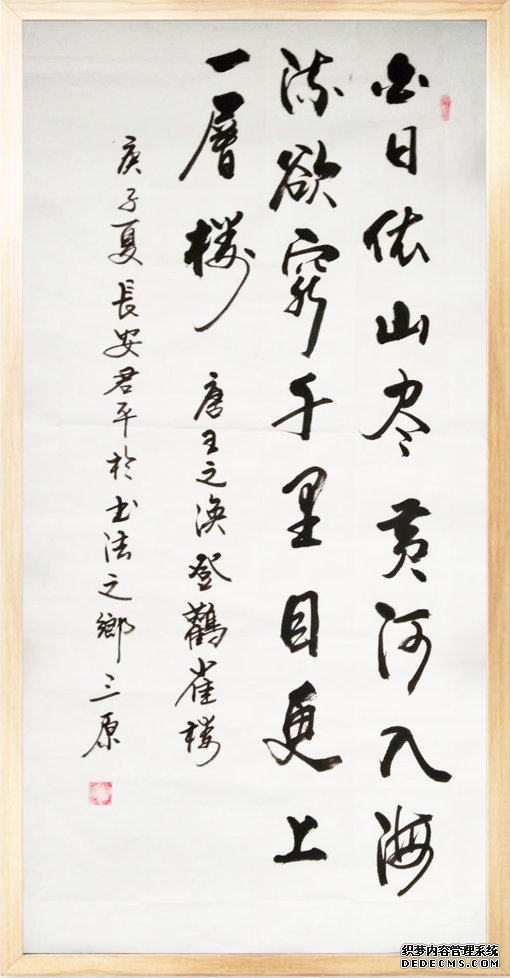 白日依山尽黄河入海
流欲穷千里目更上
一层楼 唐王之涣登鹳雀楼
庚子夏長安君平於书法之鄉三原
织梦内容管理系统
DEDECMS.COM